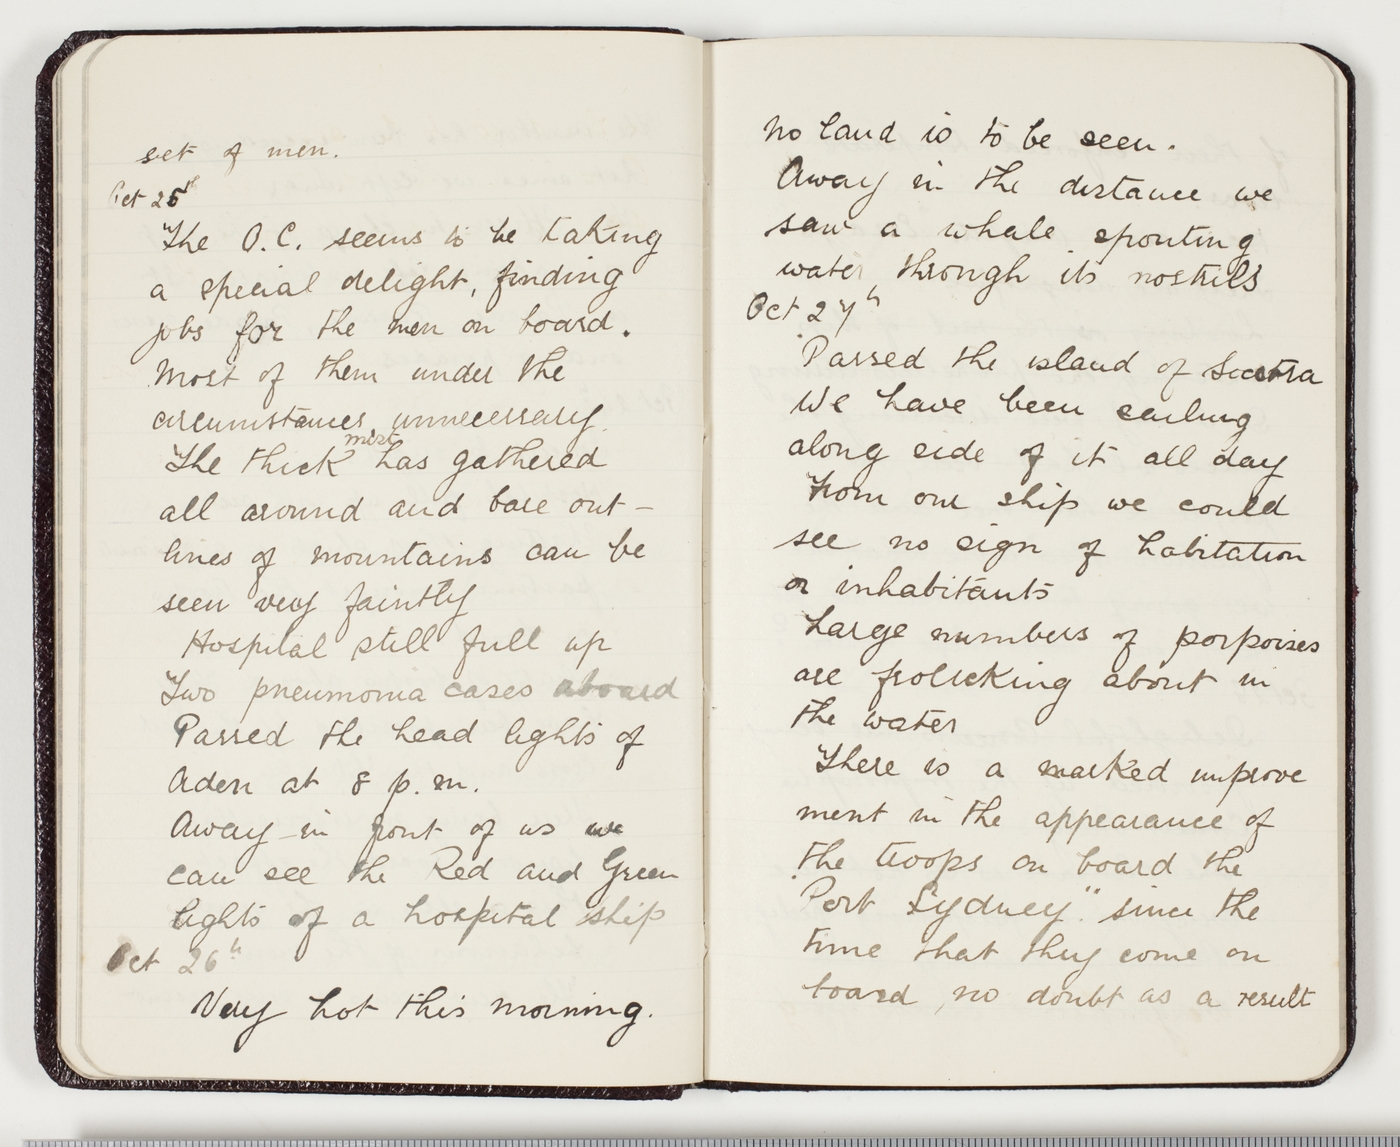 set of men.
Oct 25th
The O.C. seems to be taking
a special delight, finding
jobs for the men on board.
Most of them under the
circumstances, unnecessary.
The thick mist has gathered
all around and bare out-
lines of mountains can be
seen very faintly
Hospital still full up
Two pneumonia cases aboard
Passed the head lights of
Aden at 8 p.m.
Away in front of us we
can see the Red and Green
lights of a hospital ship
Oct 26th
Very hot this morning.
No land is to be seen.
Away in the distance we
saw a whale spouting
water through its nostrils
Oct 27th
Passed the island of Socotra
We have been sailing
along side of it all day
From our ship we could
see no sign of habitation
or inhabitants
Large numbers of porpoises
are frolicking about in
the water
There is a marked improve
ment in the appearance of
the troops on board the
"Port Sydney" since the
time that they come on
board, no doubt as a result